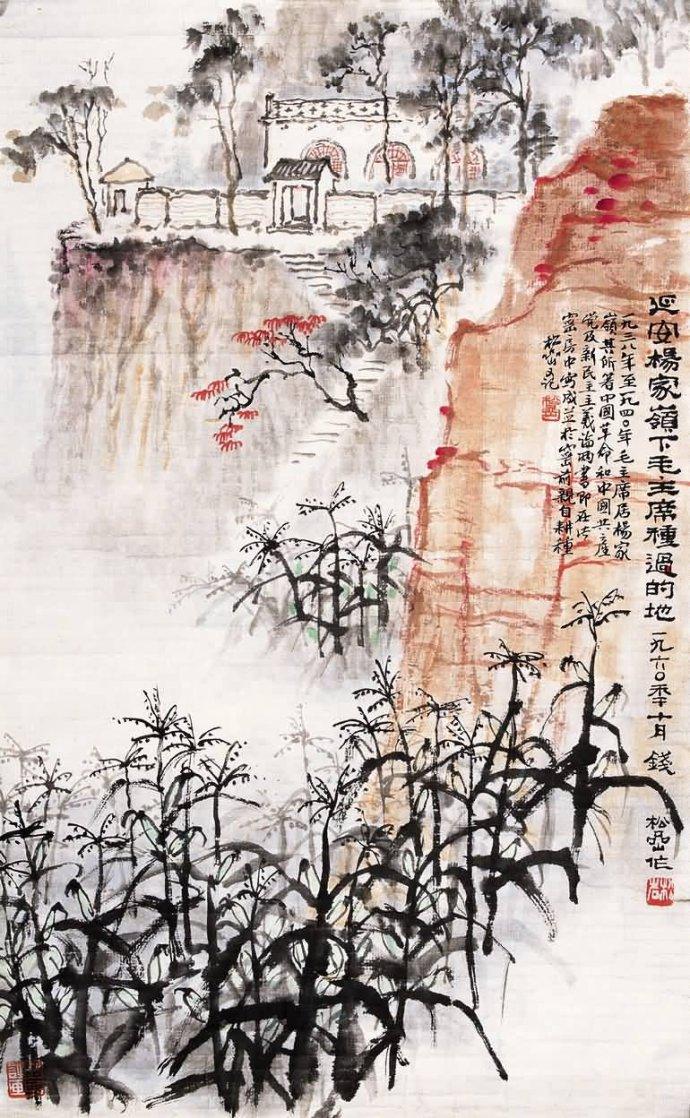 延安楊家嶺下毛主席種過的地 一九六〇年十月 錢
松嵒作
一九三八年至一九四〇年毛主席居楊家
嶺其所著中國革命和中國共產
党及新民主主義論兩書即在此
窰房中寫成並於窰前親自耕種
松嵒又記